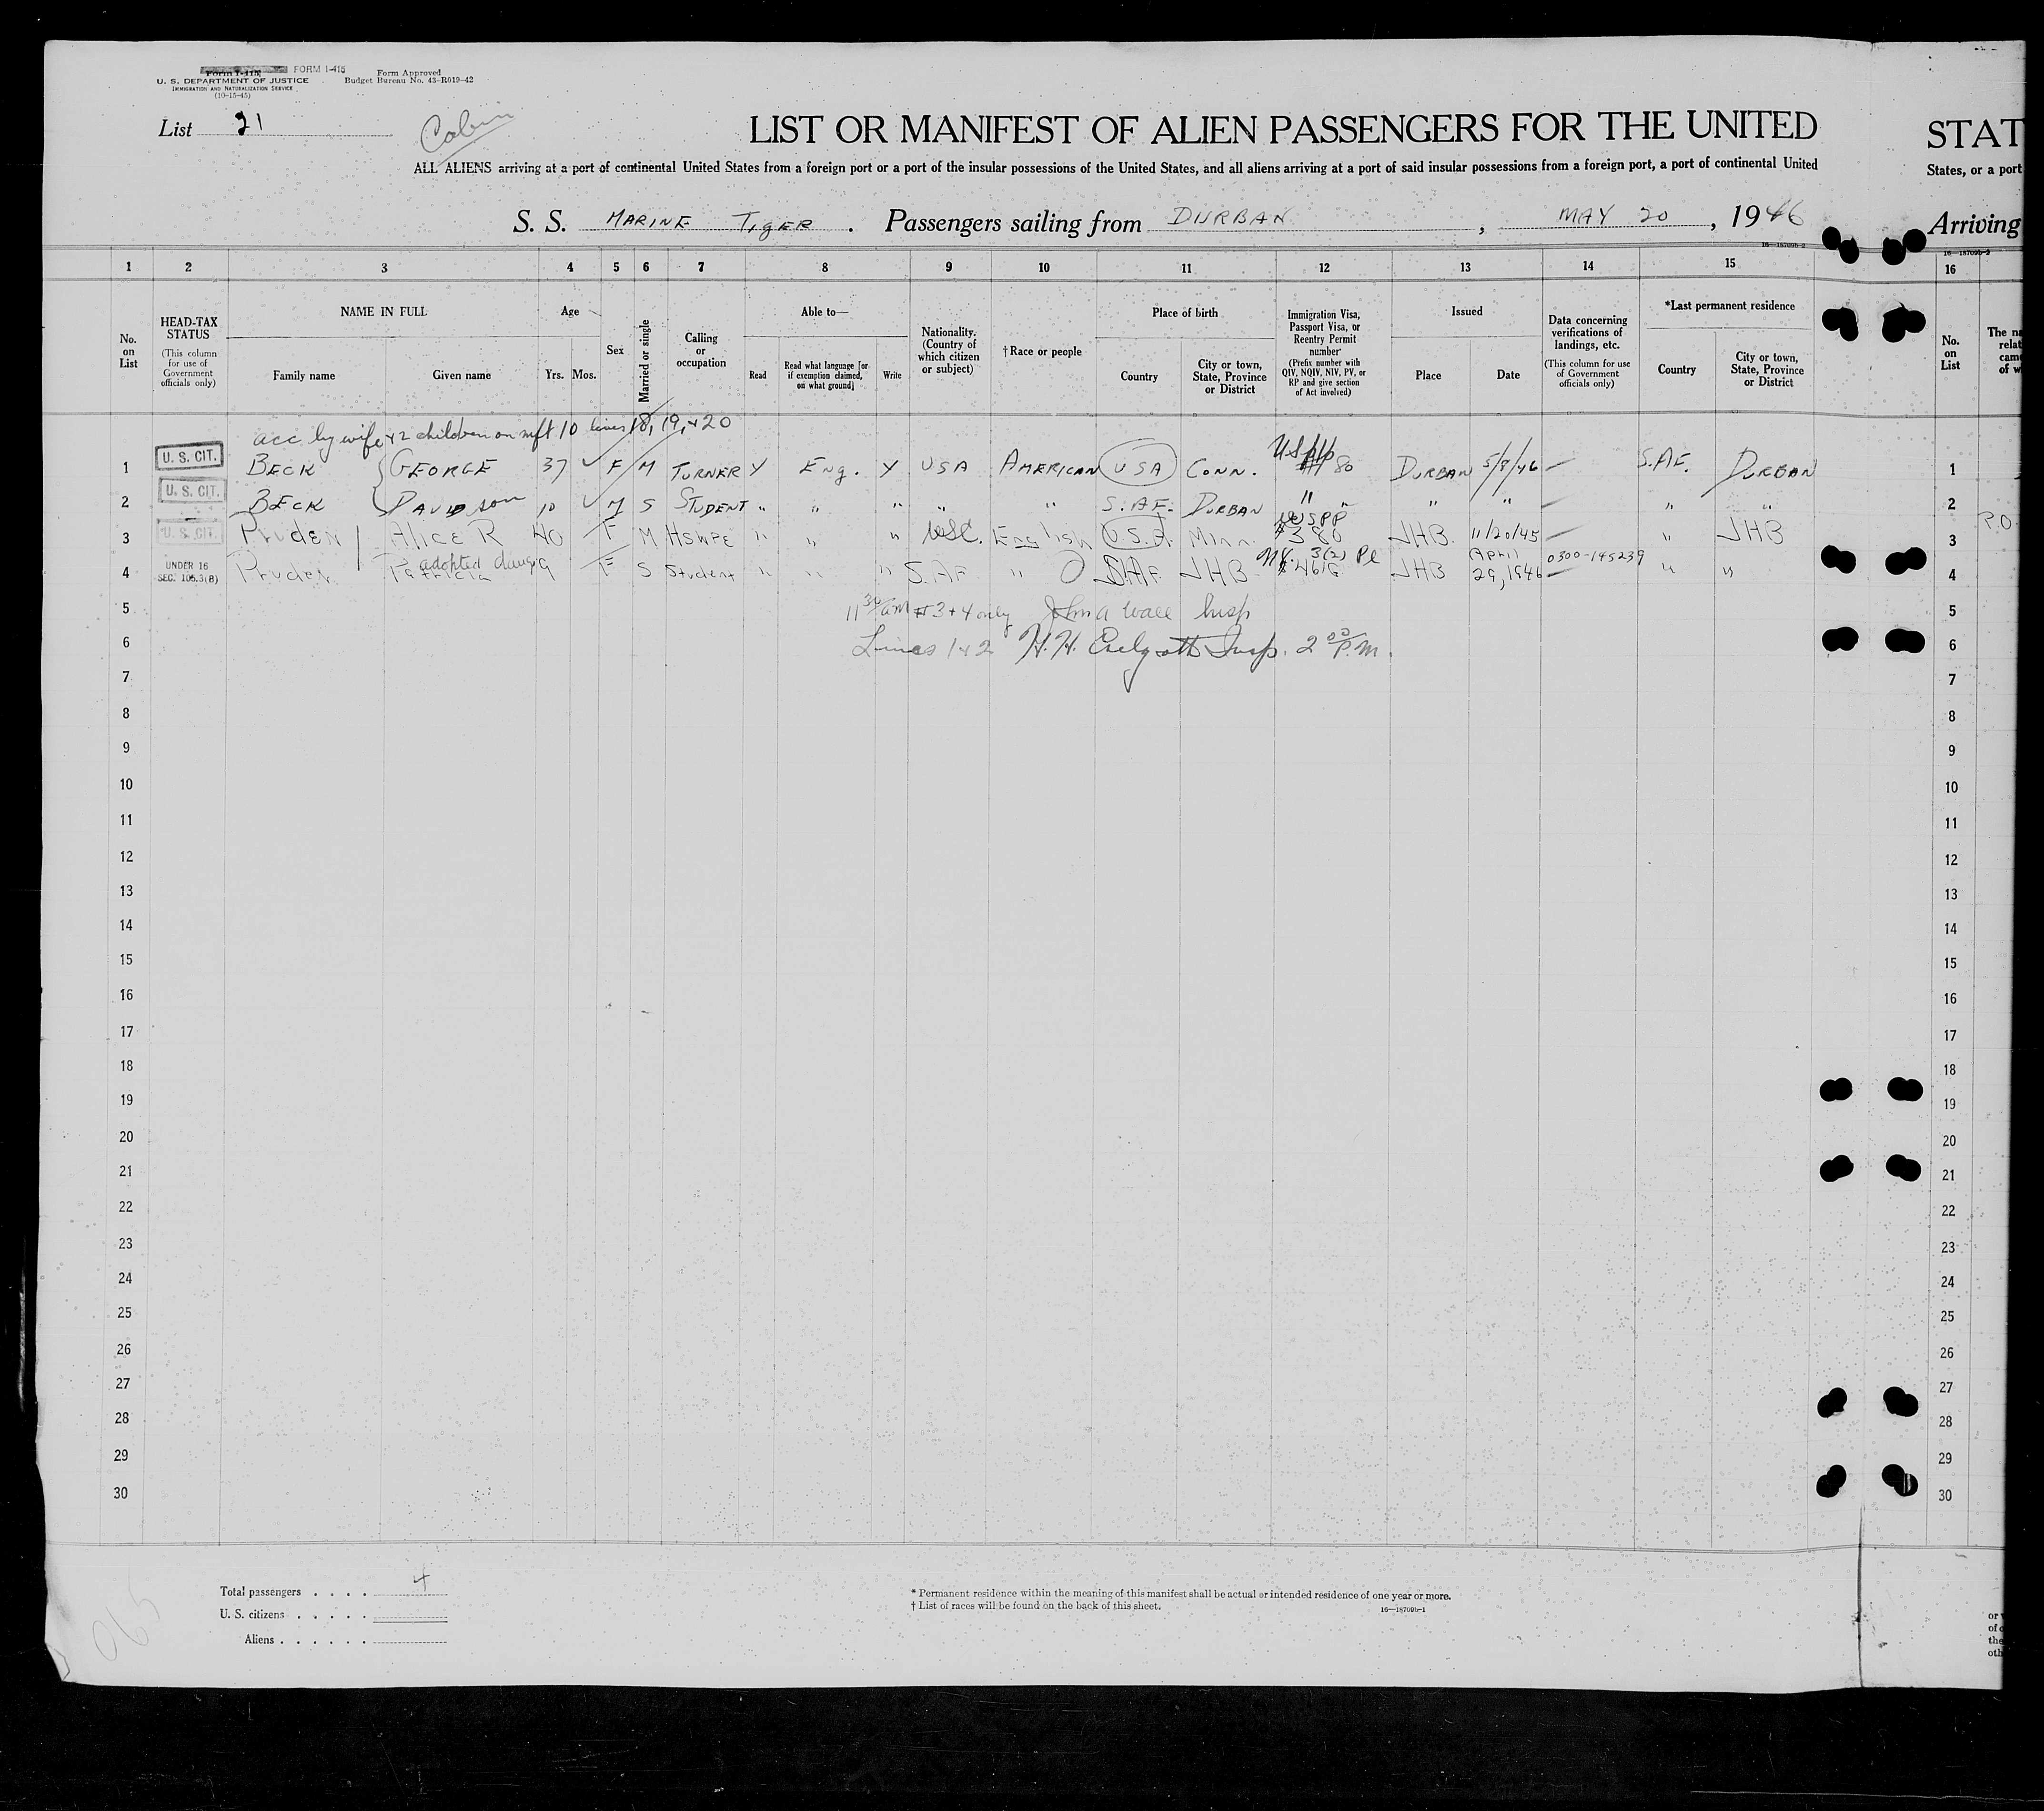 Form I-415 FORM I-415
U. S. DEPARTMENT OF JUSTICE
IMMIGRATION AND NATURALIZATION SERVICE
(10-15-45)
Form Approved
Budget Bureau No. 43-R019-42
List 21
Cabin
LIST OR MANIFEST OF ALIEN PASSENGERS FOR THE UNITED
STAT
ALL ALIENS arriving at a port of continental United States from a foreign port or a port of the insular possessions of the United States, and all aliens arriving at a port of said insular possessions from a foreign port, a port of continental United
States, or a port
S. S. MARINE TIGER . Passengers sailing from DURBAN , MAY 20 , 1946
Arriving
16—18709b-2
16—18709b-2
1 2 3 4 5 6 7 8 9 10 11 12 13 14 15 16
No. on List
HEAD-TAX STATUS
(This column for use of Government officials only)
NAME IN FULL
Family name
Given name
Age
Yrs. Mos.
Sex
Married or single
Calling or occupation
Able to—
Read
Read what language [or if exemption claimed, on what ground]
Write
Nationality. (Country of which citizen or subject)
†Race or people
Place of birth
Country
City or town, State, Province or District
Immigration Visa, Passport Visa, or Reentry Permit number
(Prefix number with QIV, NQIV, NIV, PV, or RP and give section of Act involved)
Issued
Place
Date
Data concerning verifications of landings, etc.
(This column for use of Government officials only)
*Last permanent residence
Country
City or town, State, Province or District
No. on List
The na
relat
came
of w
acc by wife + 2 children on mft 10 lines 18, 19, + 20
1 U. S. CIT. BECK GEORGE 37 F M TURNER Y Eng. Y USA AMERICAN USA CONN. USpp 80 DURBAN 5/8/46 S.AF. DURBAN 1
2 U. S. CIT. BECK DAVID son 10 M S STUDENT " " " " " S. AF. DURBAN " " " " " " 2
3 U. S. CIT. Pruden Alice R 40 F M HSWFE " " " USC. English U.S.A. Minn. USPP 380 JHB. 11/20/45 " JHB 3
P.O.
adopted daug
4 UNDER 16 SEC. 105.3(B) Pruden Patricia 9 F S Student " " " S. AF. " S.AF. JHB 3(2) JHB April 29, 1946 0300-145239 " " 4
5 11 30 am # 3 + 4 only John A Wall Insp 5
6 Lines 1 + 2 H.H. Insp. 2 00 P.M. 6
7 7
8 8
9 9
10 10
11 11
12 12
13 13
14 14
15 15
16 16
17 17
18 18
19 19
20 20
21 21
22 22
23 23
24 24
25 25
26 26
27 27
28 28
29 29
30 30
Total passengers . . . . 4
U. S. citizens . . . . .
Aliens . . . . . .
* Permanent residence within the meaning of this manifest shall be actual or intended residence of one year or more.
† List of races will be found on the back of this sheet.
16—18709b-1
or
of
the
oth